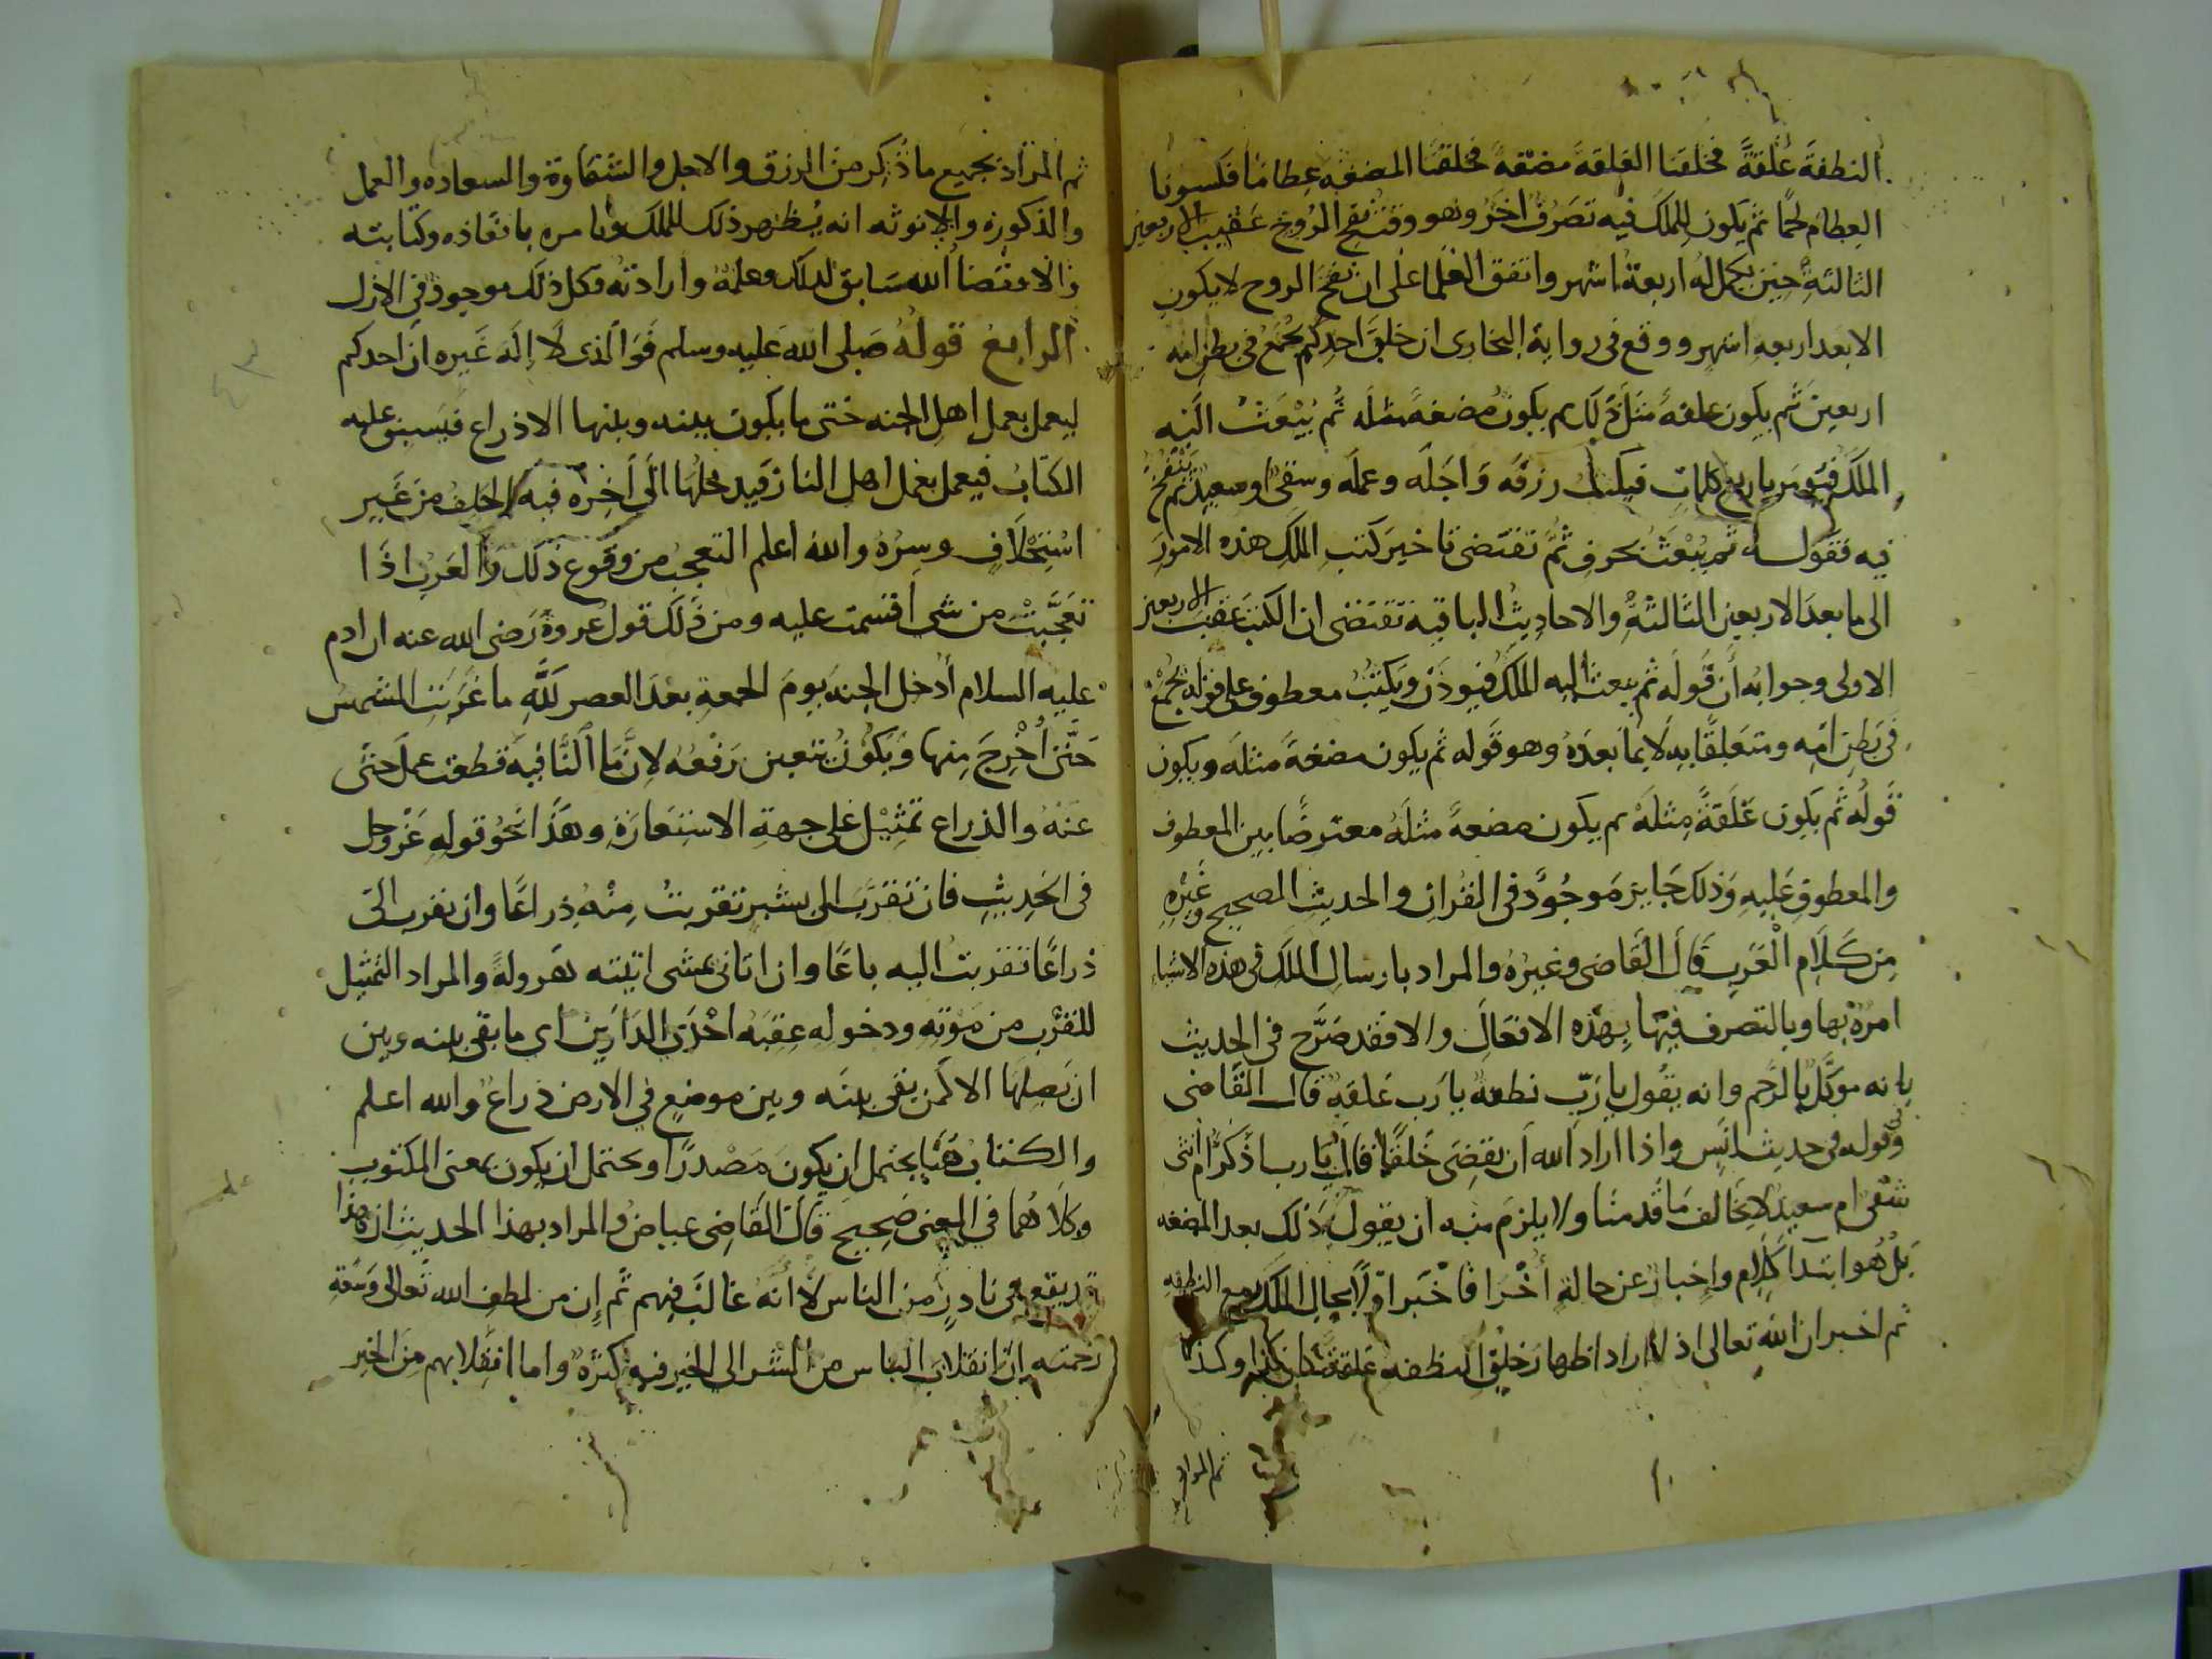 النطفة علقة فخلقنا العلقة مضغة فخلقنا المضغه عظاما فكسونا
العظام لحما ثم يكون للملك فيه تصرف اخر وهو وقت نفخ الروح عقيب الاربعين
الثالثة حين يكمل له اربعة اشهر واتفق العلما على ان نفخ الروح لا يكون
الا بعد اربعه اشهر ووقع في رواية البخارى ان خلق احدكم يجمع في بطن امه
اربعين ثم يكون علقه مثل ذلك ثم يكون مضغه مثله ثم يبعث اليه
الملك فيومر باربع كلمات فيكتب رزقه واجله وعمله وشقى او سعيد ثم ينفخ
فيه فقوله ثم يبعث بحرف ثم تقتضى تاخير كتب الملك هذه الامور
الى ما بعد الاربعين الثالثة والاحاديث الباقيه تقتضى ان الكتب عقب الاربعين
الاولى وجوابه ان قوله ثم يبعث اليه الملك فيوذن ويكتب معطوف على قوله يجمع
في بطن امه ومتعلقا به لا بما بعده وهو قوله ثم يكون مضغة مثله ويكون
قوله ثم يكون علقة مثله ثم يكون مضعة مثله معترضا بين المعطوف
والمعطوف عليه وذلك جايز موجود في القران والحديث الصحيح وغيره
من كلام العرب قال القاضى وغيره والمراد بارسال الملك في هذه الاشيا
امره بها وبالتصرف فيها بهذه الافعال والا فقد صرح في الحديث
بانه موكل بالرحم وانه يقول يا رب نطفة يا رب علقة قال القاضى
وقوله في حديث انس واذا اراد الله ان يقضى خلقا قال يا رب اذكر ام انثى
شقى ام سعيد لا يخالف ما قدمنا ولا يلزم منه ان يقول ذلك بعد المضغه
بل هو ابتدا كلام واخبار عن حالة اخرا فاخبر اولا بحال الملك مع النطفه
ثم اخبر ان الله تعالى اذا اراد اظهار خلق النطفه علقة كان كذا وكذا
ثم المراد
ثم المراد بجميع ما ذكر من الرزق والاجل والشقاوة والسعاده والعمل
والذكورة والانوثه انه يظهر ذلك للملك ويامره بانفاذه وكتابته
والا فقضا الله سابق لذلك وعلمه وارادته وكل ذلك موجود في الازل
الرابع قوله صلى الله عليه وسلم فوالذى لا اله غيره ان احدكم
ليعمل بعمل اهل الجنه حتى ما يكون بينه وبينها الا ذراع فيسبق عليه
الكتاب فيعمل بعمل اهل النار فيدخلها الى اخره فيه الحلف من غير
استحلاف وسره والله اعلم التعجب من وقوع ذلك والعرب اذا
تعجبت من شى اقسمت عليه ومن ذلك قول عروة رضى الله عنه ان ادم
عليه السلام ادخل الجنة يوم الجمعة بعد العصر لله ما غربت الشمس
حتى اخرج منها ويكون يتعين رفعه لان ما النافية قطعت عمل حتى
عنه والذراع تمثيل على جهة الاستعارة وهذا نحو قوله عز وجل
في الحديث فان تقرب الى بشبر تقربت منه ذراعا وان تقرب الى
ذراعا تقربت اليه باعا وان اتانى يمشى اتيته هرولة والمراد التمثيل
للقرب من موته ودخوله عقبه احدى الدارين اى ما بقى بينه وبين
ان يصلها الا كمن بقى بينه وبين موضع في الارض ذراع والله اعلم
والكتاب هنا يحتمل ان يكون مصدرا ويحتمل ان يكون بمعنى المكتوب
وكلاهما في المعنى صحيح قال القاضى عياض والمراد بهذا الحديث ان هذا
قد يقع في نادر من الناس لا انه غالب فيهم ثم ان من لطف الله تعالى وسعة
رحمته ان انقلاب الناس من الشر الى الخير فيه كثرة واما انقلابهم من الخير